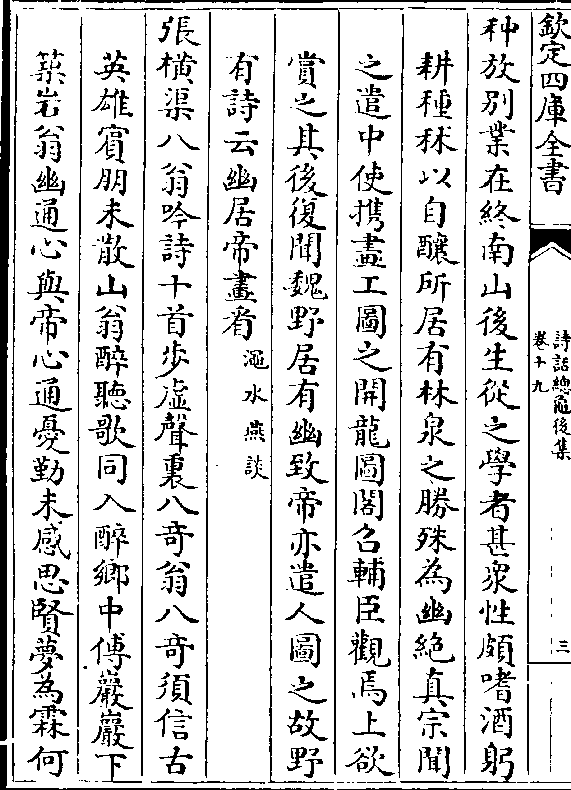 欽定四庫全書
詩話總龜後集
卷十九
三
种放别業在終南山後生從之學者甚衆性頗嗜酒躬
耕種秫以自釀所居有林泉之勝殊為幽絶真宗聞
之遣中使携畫工圖之開龍圖閣召輔臣觀焉上欲
賞之其後復聞魏野居有幽致帝亦遣人圖之故野
有詩云幽居帝畫看 澠水燕談
張橫渠八翁吟詩十首歩虚聲裏八奇翁八奇須信古
英雄賓朋未散山翁醉聽歌同入醉鄉中傅巖巖下
築岩翁幽通心與帝心通憂勤未感思賢夢為霖何